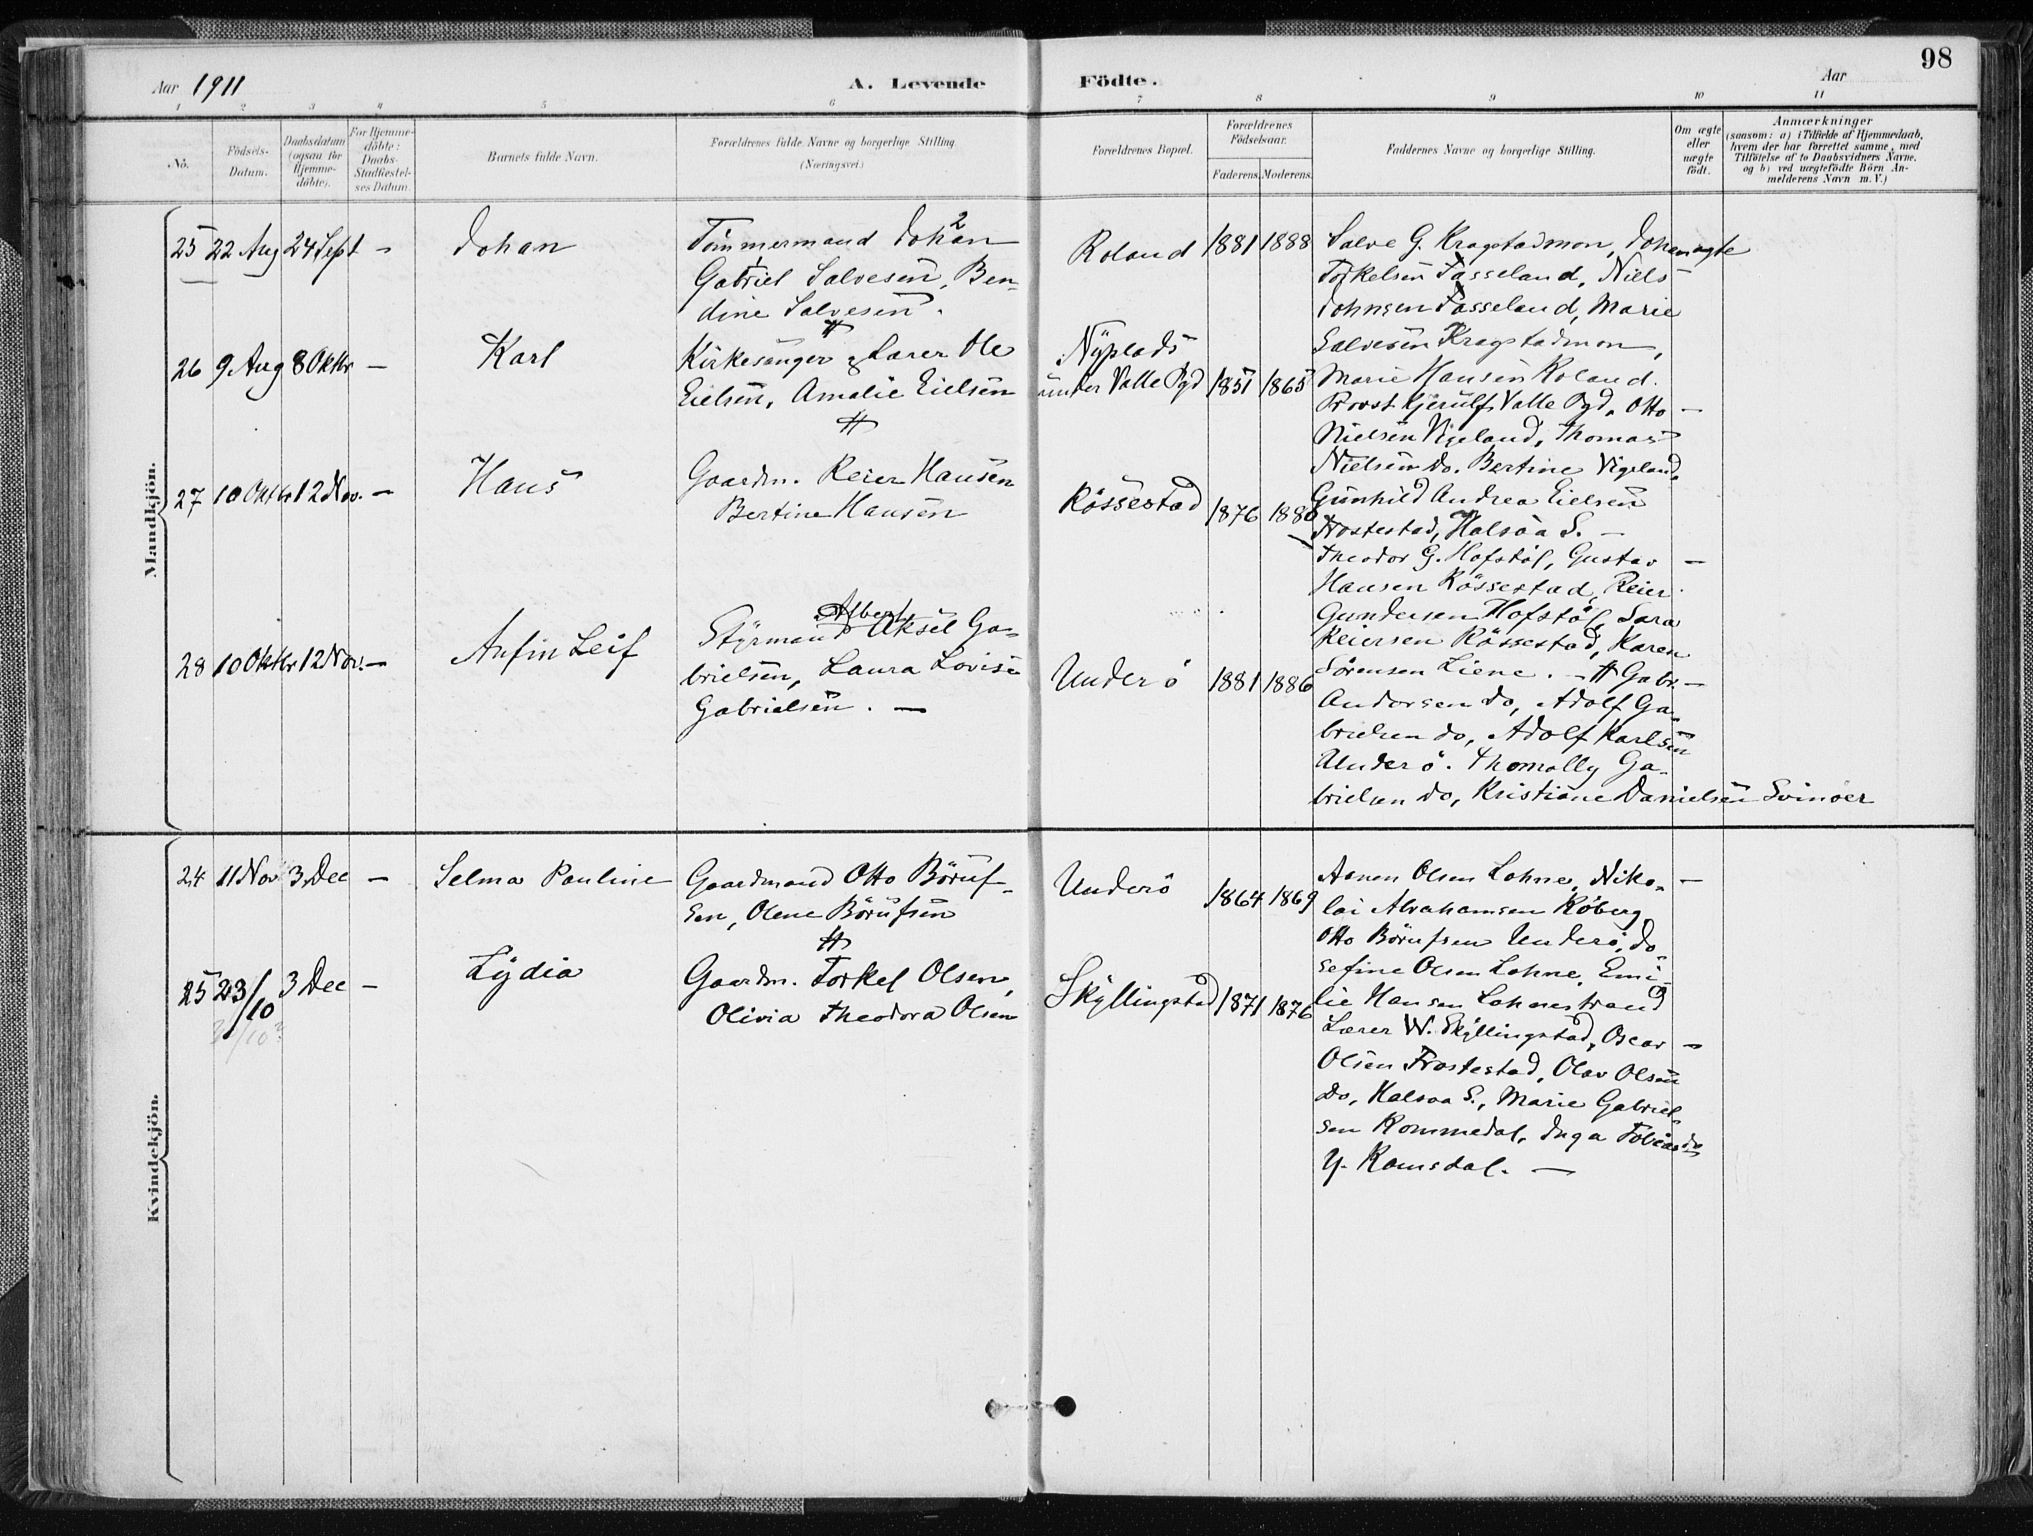 98
Aar 1911
A. Levende Födte.
Aar
1 2 3 4 5 6 7 8 9 10 11
No.
Födsels-Datum.
Daabsdatum (ogsaa for Hjemme-döbte).
For Hjemme-döbte: Daabs-Stadfæstel-ses Datum.
Barnets fulde Navn.
Forældrenes fulde Navne og borgerlige Stilling (Næringsvei.)
Forældrenes Bopæl.
Forældrenes Födselsaar.
Faderens. Moderens.
Faddernes Navne og borgerlige Stilling.
Om ægte eller uægte födt.
Anmærkninger
(saasom: a) i Tilfælde af Hjemmedaab,
hvem der har forrettet samme, med
Tilföielse af to Daabsvidners Navne,
og b) ved uægtefödte Börn An-
melderens Navn m. V.)
Mandkjön.
25 22 Aug 24 Sept - Johan
Tömmermand Johan 2
Gabriel Salvesen, Ben-
dine Salvesen.
Roland 1881 1888
Salve G. Kragstadmon,
Torkelsen Fasseland, Niels
Johnsen Fasseland, Marie
Salvesen Kragstadmon,
Marie Hansen Roland.
ægte
26 9 Aug 8 Oktbr - Karl
Kirkesanger & Lærer Ole
Eielsen, Amalie Eielsen
Nyplads
under Valle Pgd 1851 1865
Provst Kjerulf Valle Pgd, Otto -
Nielsen Vigeland, Thomas
Nielsen do. Bertine Vigeland,
Gunhild Andrea Eielsen
Frostestad, Halsaa S. -
27 10 Oktbr 12 Nov. - Hans
Gaardm. Reier Hansen
Bertine Hansen
Rössestad 1876 1880
Theodor G. Hofstöl, Gustav -
Hansen Rössestad, Reier
Gundersen Hofstöl, Sara
Reiersen Rössestad, Karen
Sörensen Liene. -
28 10 Oktbr 12 Nov. - Anfin Leif
Albert
Styrmand Aksel Ga-
brielsen, Laura Lovise
Gabrielsen. -
Underö 1881 1886
Gabr. -
Andersen do, Adolf Ga-
brielsen do, Adolf Karlsen
Underö. Thomally Ga-
brielsen do, Kristiane Danielsen Svinöer
Kvindekjön.
24 11 Nov 3 Dec - Selma Pauline
Gaardmand Otto Böruf-
sen, Olene Börufsen
Underö 1864 1869
Aanen Olsen Lohne, Niko- -
lai Abrahamsen Köberg,
Otto Börufsen Underö, Jo-
sefine Olsen Lohne, Emi-
lie Hansen Lohnestrand
25 23/10 3 Dec - Lydia
Gaardm. Torkel Olsen,
Olivia Theodora Olsen
Skyllingstad 1871 1876
Lærer W. Skyllingstad, Oscar -
Olsen Frostestad, Olav Olsen
do, Halsaa S., Marie Gabriel-
sen Rommedal, Inga Tobias-
Y. Ramsdal. -